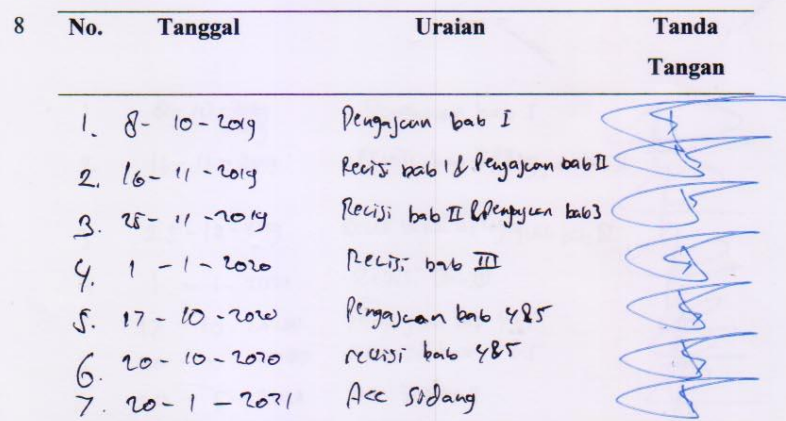 8 No. Tanggal Uraian Tanda
Tangan
1. 8-10-2019 Pengajuan bab I
2. 16-11-2019 Revisi bab I & Pengajuan bab II
3. 25-11-2019 Revisi bab II & Pengajuan bab 3
4. 1-1-2020 Revisi bab III
5. 17-10-2020 Pengajuan bab 4&5
6. 20-10-2020 revisi bab 4&5
7. 20-1-2021 Acc Sidang